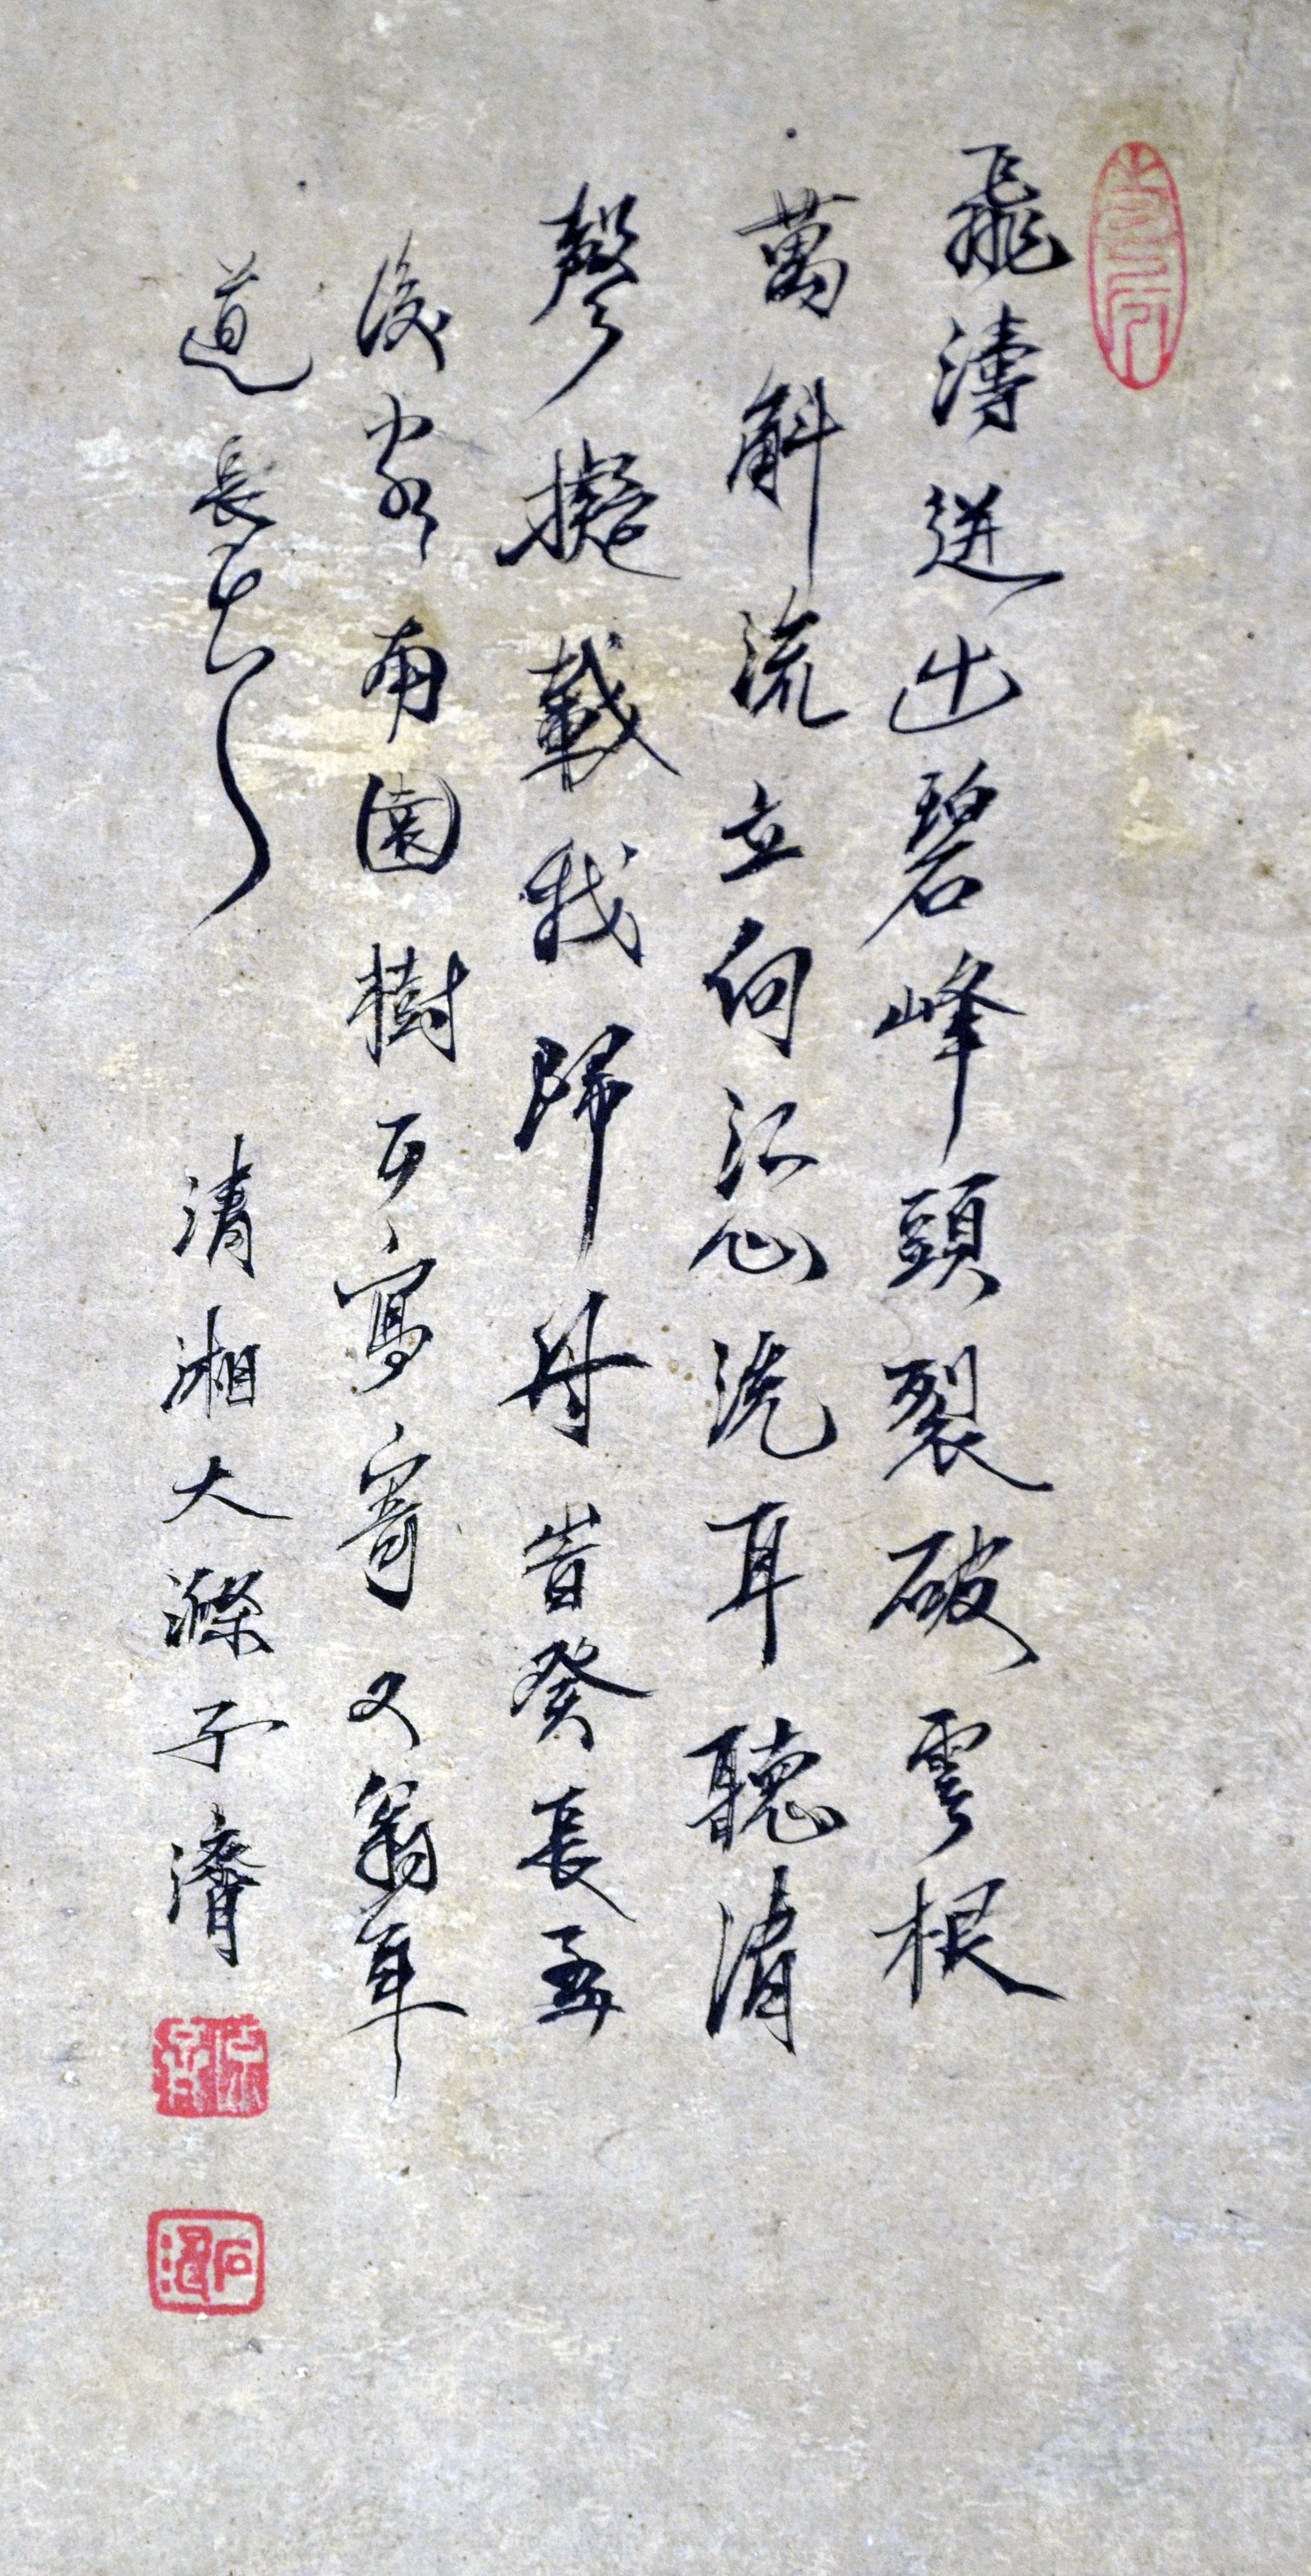 飛濤迸出碧峰頭裂破雲根
萬斛流立向江心洗耳聽清
聲擬載我歸舟旹癸長至
後客用園樹下寫寄又翁年
道長兄
清湘大滌子濟